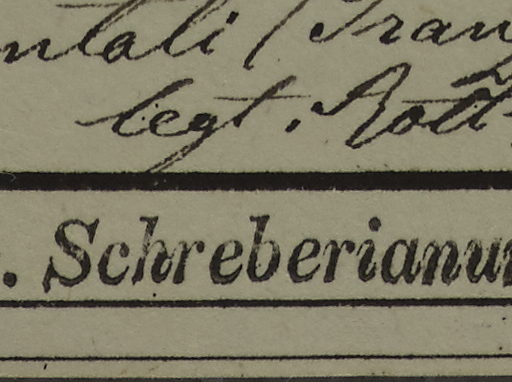 ntali (Tran
legt. Rott
. Schreberianu